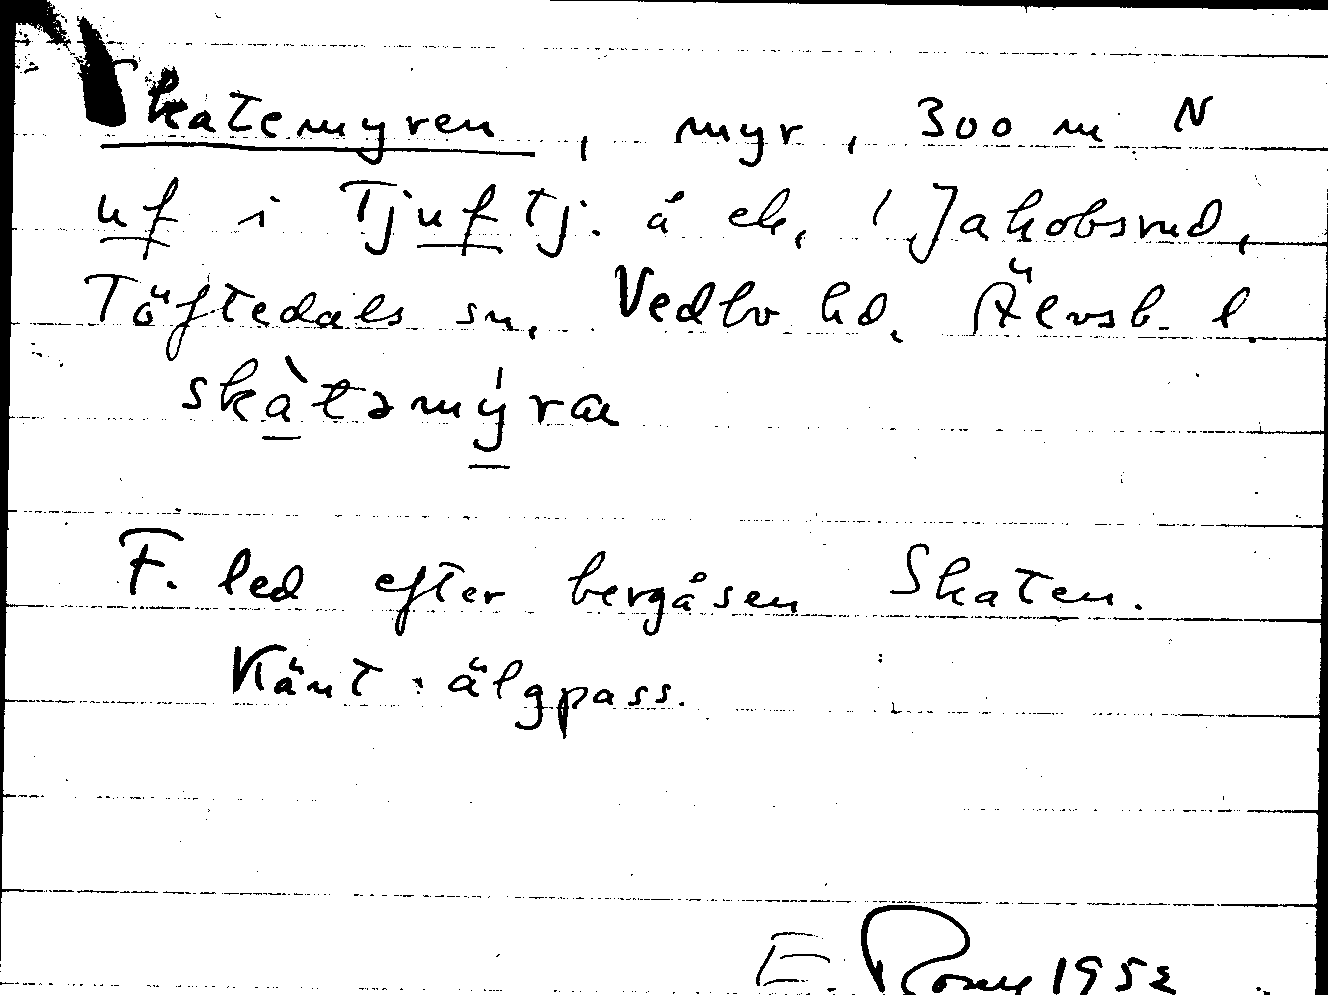 Skatemyren, myr, 300 m N
uf i Tjuftj. å ek, 1 Jakobsrud,
Töftedals sn, Vedbo hd. Älvsb. l.
skàtəmýra
F. led efter bergåsen Skaten.
Känt älgpass.
E. 1952